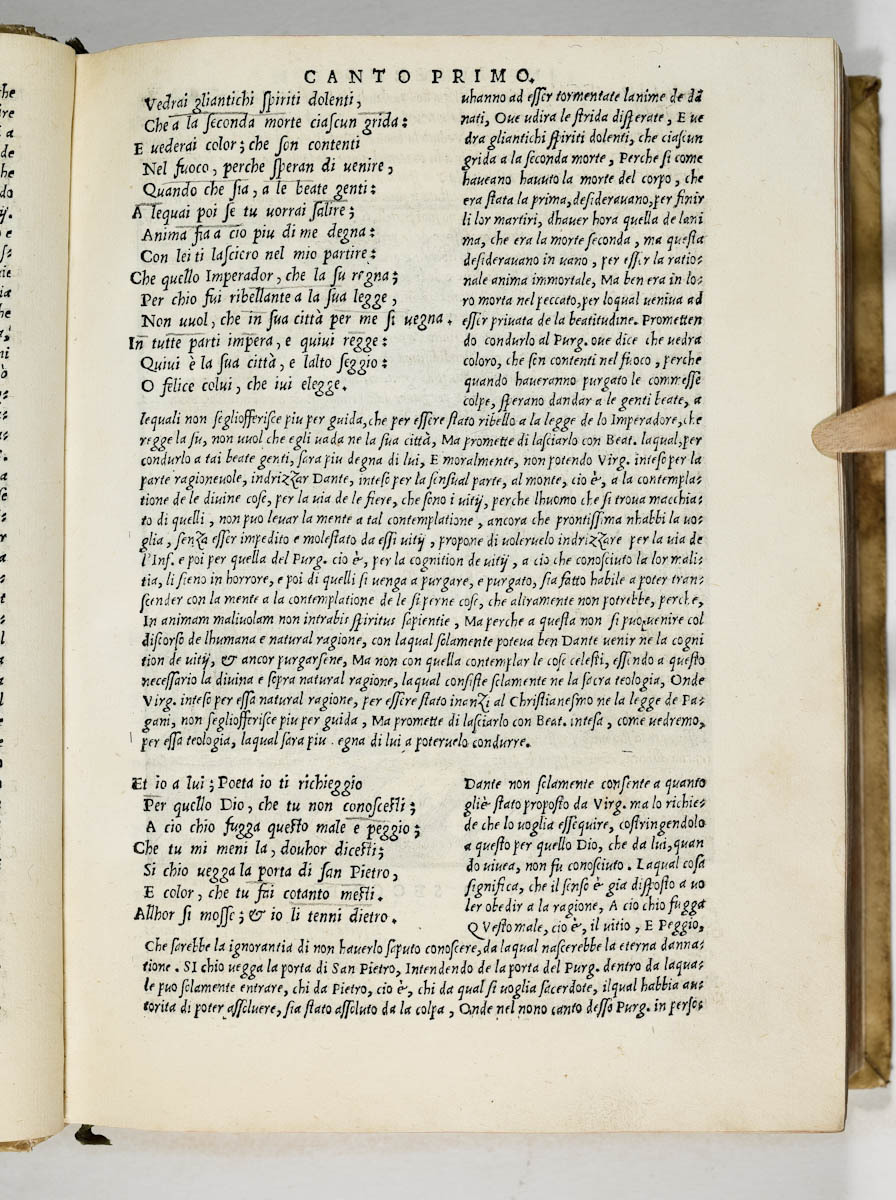 CANTO PRIMO.
Vedrai gliantichi spiriti dolenti,
Che a la seconda morte ciascun grida:
E uederai color; che son contenti
Nel fuoco, perche speran di uenire,
Quando che sia, a le beate genti:
A lequai poi se tu uorrai salire;
Anima fia a cio piu di me degna:
Con lei ti lasciero nel mio partire:
Che quello Imperador, che la su regna;
Per chio fui ribellante a la sua legge,
Non uuol, che in sua città per me si uegna.
In tutte parti impera, e quiui regge:
Quiui è la sua città, e lalto seggio:
O felice colui, che iui elegge.
uhanno ad esser tormentate lanime de dã
nati, Oue udira le strida disperate, E ue
dra gliantichi spiriti dolenti, che ciascun
grida a la seconda morte, Perche si come
haueano hauuto la morte del corpo, che
era stata la prima, desiderauano, per finir
li lor martiri, dhauer hora quella de lani
ma, che era la morte seconda, ma questa
desiderauano in uano, per esser la ratio-
nale anima immortale, Ma ben era in lo-
ro morta nel peccato, per loqual ueniua ad
esser priuata de la beatitudine. Prometten
do condurlo al Purg. oue dice che uedra
coloro, che son contenti nel fuoco, perche
quando haueranno purgato le commesse
colpe, sperano dandar a le genti beate, a
lequali non segliofferisce piu per guida, che per essere stato ribello a la legge de lo Imperadore, che
regge la su, non uuol che egli uada ne la sua città, Ma promette di lasciarlo con Beat. laqual, per
condurlo a tai beate genti, sara piu degna di lui, E moralmente, non potendo Virg. inteso per la
parte ragioneuole, indrizzar Dante, inteso per la sensual parte, al monte, cio è, a la contempla-
tione de le diuine cose, per la uia de le fiere, che sono i uitij, perche lhuomo che si troua macchia-
to di quelli, non puo leuar la mente a tal contemplatione, ancora che prontissima nhabbi la uo-
glia, senza esser impedito e molestato da essi uitij, propone di uoleruelo indrizzare per la uia de
l'Inf. e poi per quella del Purg. cio è, per la cognition de uitij, a cio che conosciuto la lor mali-
tia, li sieno in horrore, e poi di quelli si uenga a purgare, e purgato, sia fatto habile a poter tran-
scender con la mente a la contemplatione de le superne cose, che altramente non potrebbe, perche,
In animam maliuolam non intrabit spiritus sapientie, Ma perche a questa non si puo uenire col
discorso de lhumana e natural ragione, con laqual solamente poteua ben Dante uenir ne la cogni
tion de uitij, & ancor purgarsene, Ma non con quella contemplar le cose celesti, essendo a questo
necessario la diuina e sopra natural ragione, laqual consiste solamente ne la sacra teologia, Onde
Virg. inteso per essa natural ragione, per essere stato inanzi al Christianesmo ne la legge de Pa-
gani, non segliofferisce piu per guida, Ma promette di lasciarlo con Beat. intesa, come uedremo,
per essa teologia, laqual sara piu egna di lui a poteruelo condurre.
Et io a lui; Poeta io ti richieggio
Per quello Dio, che tu non conoscesti;
A cio chio fugga questo male e peggio;
Che tu mi meni la, douhor dicesti;
Si chio uegga la porta di san Pietro,
E color, che tu fai cotanto mesti.
Allhor si mosse; & io li tenni dietro.
Dante non solamente consente a quanto
gliè stato proposto da Virg. ma lo richie-
de che lo uoglia essequire, costringendolo
a questo per quello Dio, che da lui, quan
do uiuea, non fu conosciuto. Laqual cosa
significa, che il senso è gia disposto a uo
ler obedir a la ragione, A cio chio fugga
QVesto male, cio è, il uitio, E Peggio,
Che sarebbe la ignorantia di non hauerlo saputo conoscere, da laqual nascerebbe la eterna danna-
tione. SI chio uegga la porta di San Pietro, Intendendo de la porta del Purg. dentro da laqua-
le puo solamente entrare, chi da Pietro, cio è, chi da qual si uoglia sacerdote, ilqual habbia au-
torita di poter assoluere, sia stato assoluto da la colpa, Onde nel nono canto desso Purg. in perso-